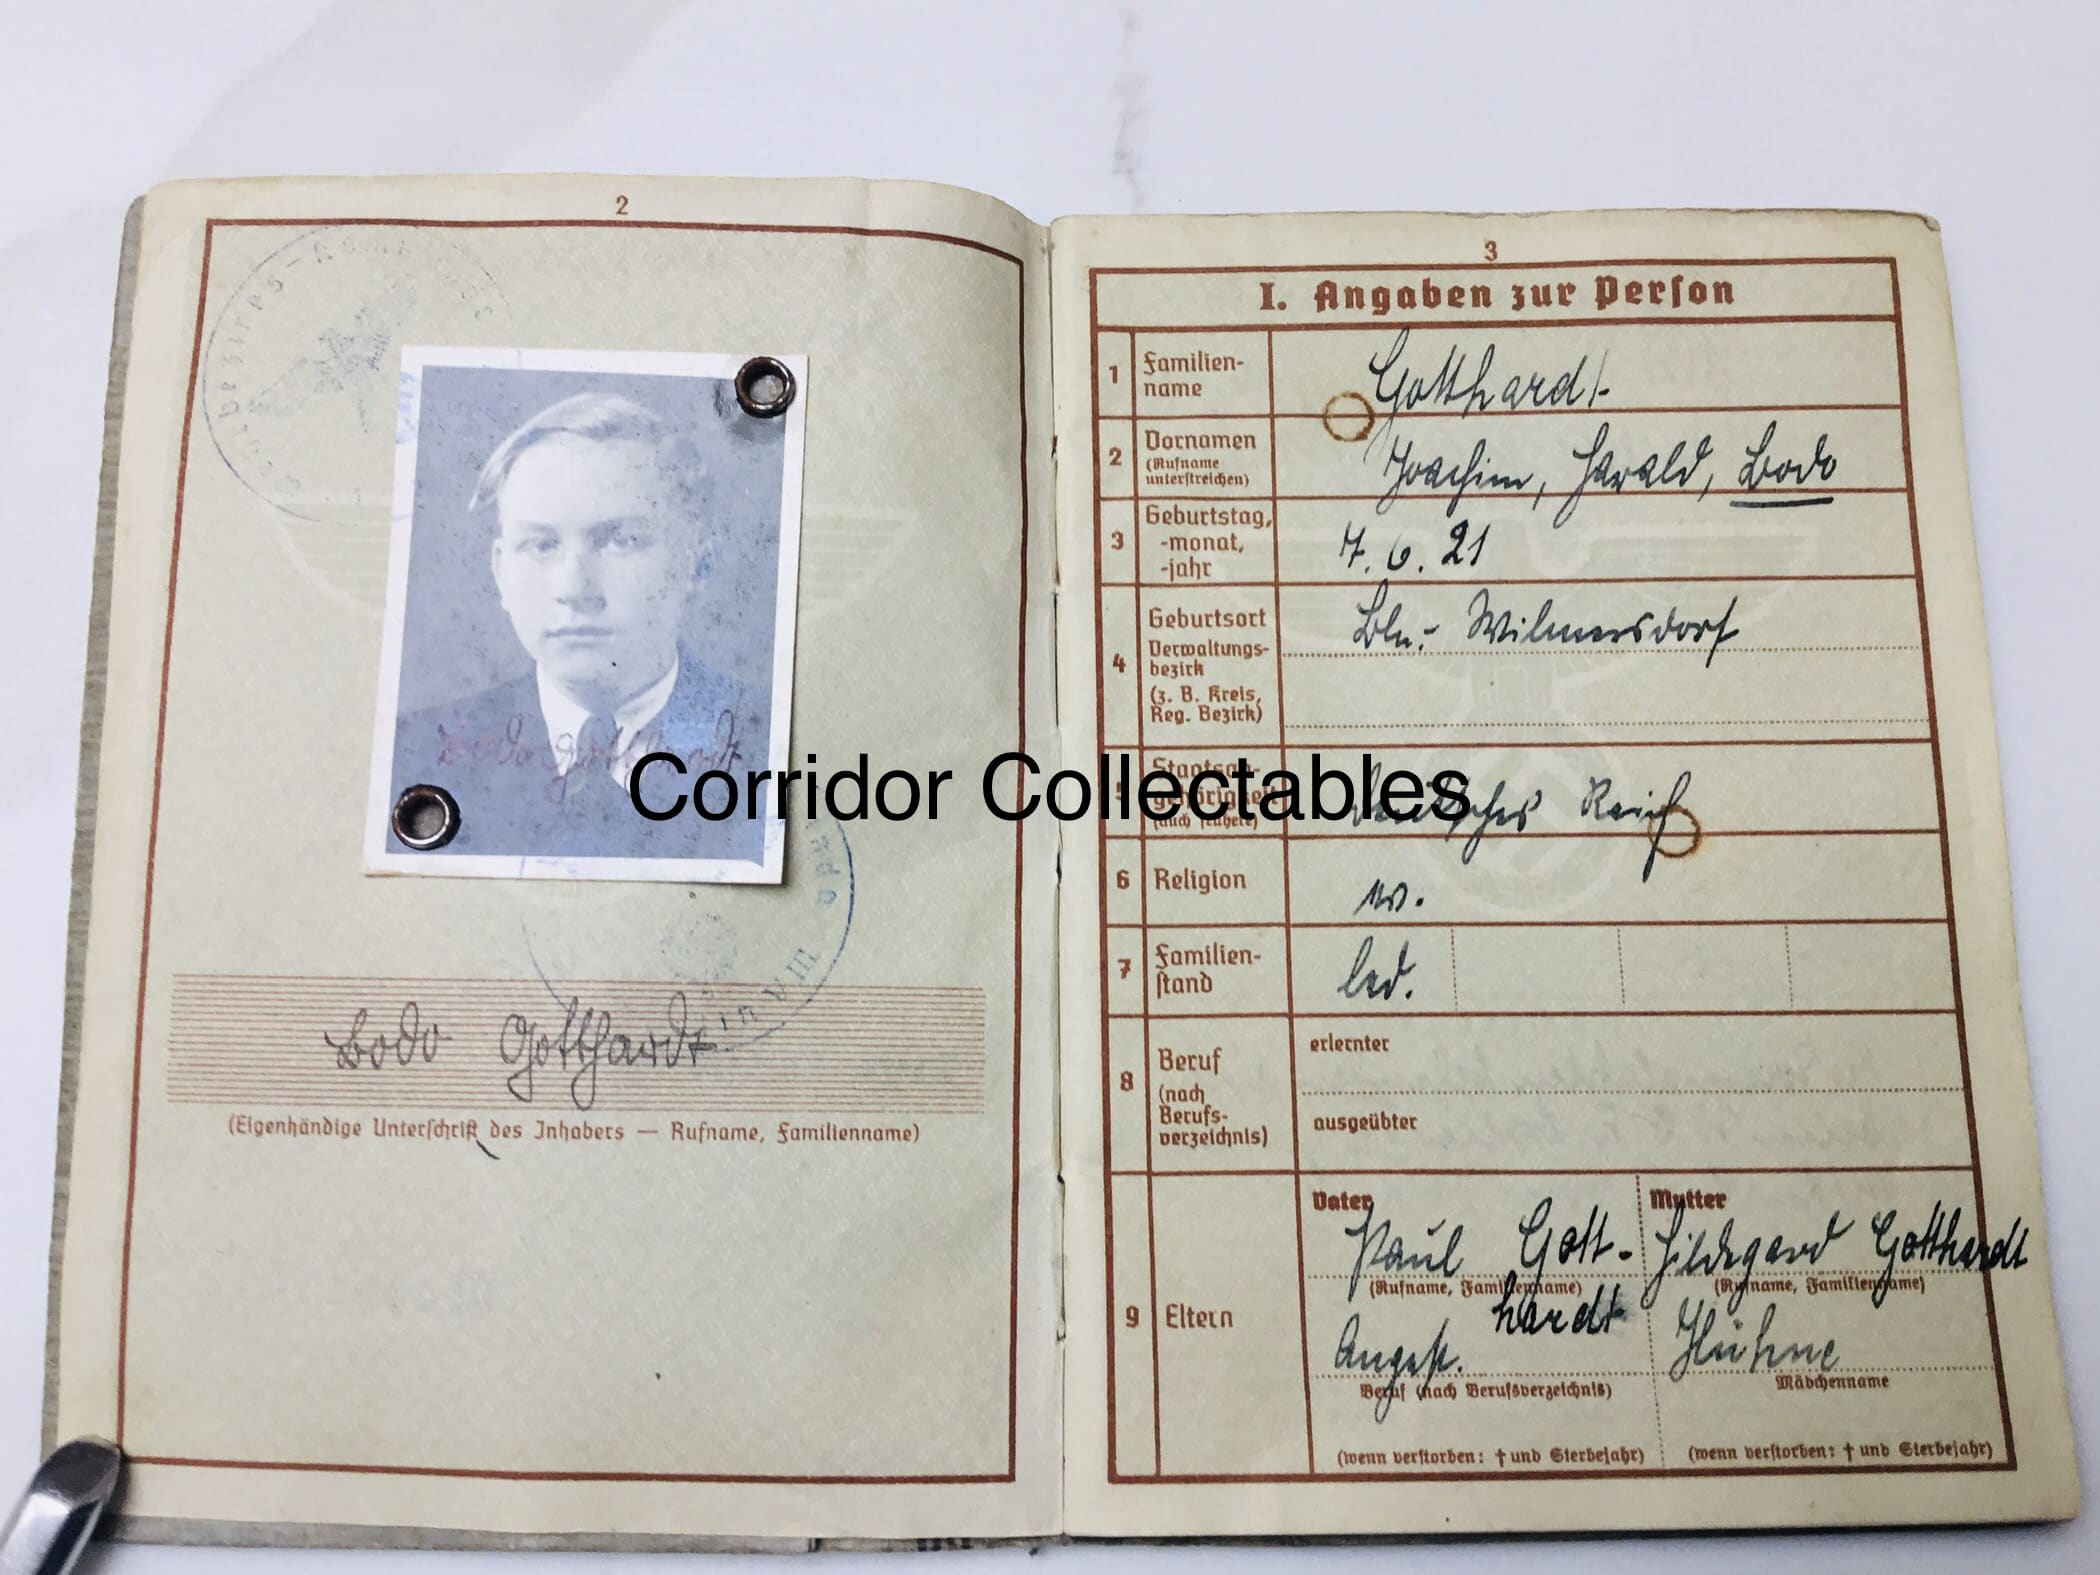 2
Bodo Gotthardt
Bodo Gotthardt
(Eigenhändige Unterschrift des Inhabers — Rufname, Familienname)
Corridor Collectables
3
I. Angaben zur Person
1 Familien-
name
Gotthardt
2 Vornamen
(Rufname
unterstreichen)
Joachim, Harald, Bodo
3 Geburtstag,
-monat,
-jahr
7. 6. 21
4 Geburtsort
Verwaltungs-
bezirk
(z. B. Kreis,
Reg. Bezirk)
Bln.- Wilmersdorf
5 Staatsan-
gehörigkeit
(auch frühere)
Deutsches Reich
6 Religion
ev.
7 Familien-
stand
led.
8 Beruf
(nach
Berufs-
verzeichnis)
erlernter
ausgeübter
9 Eltern
Vater
Paul Gott-
(Rufname, Familienname)
hardt
Angest.
Beruf (nach Berufsverzeichnis)
(wenn verstorben: † und Sterbejahr)
Mutter
Hildegard Gotthardt
(Rufname, Familienname)
Mädchenname
(wenn verstorben: † und Sterbejahr)